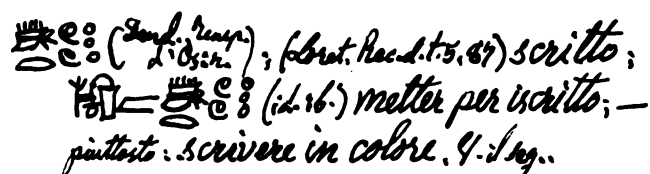 (Dend. Temp. d'Osir.); (Loret. Rec. d. t. 5, 87) scritto;
(id. ib.) metter per iscritto; —
piuttosto: scrivere in colore. V. il seg..